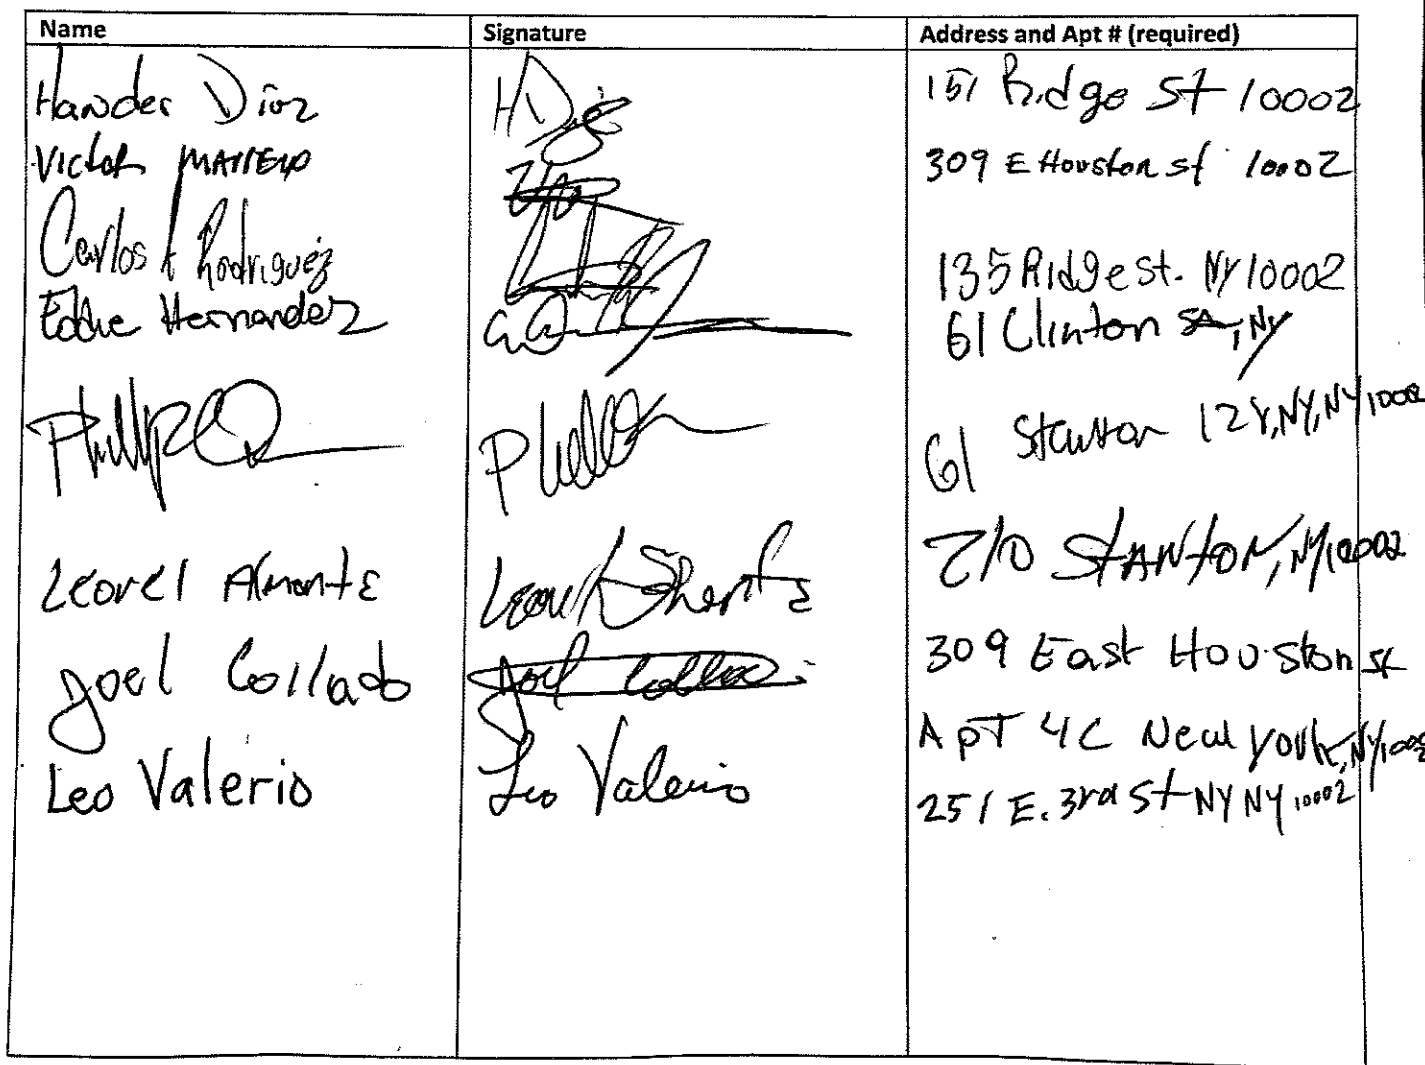 Name Signature Address and Apt # (required)
Hander Diaz HDiaz 151 Ridge St 10002
Victor Marrero 309 E Houston st 10002
Carlos Rodriguez 135 Ridge st. NY 10002
Eddie Hernandez 61 Clinton St, NY
Phillip 61 Stanton 12Y, NY, NY 10002
Leonel Almonte 210 STANTON, NY 10002
Joel Collado Joel Collado 309 East Houston st
Apt 4C New York, NY 10002
Leo Valerio Leo Valerio 251 E. 3rd St NY NY 10002